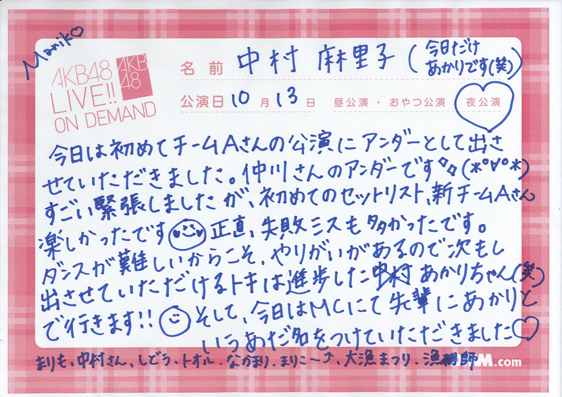 Mariko
AKB48
LIVE!!
ON DEMAND
AKB
48
名前 中村 麻里子(今日だけ
あかりです(笑)
公演日 10月13日 昼公演・おやつ公演 夜公演
今日は初めてチームAさんの公演にアンダーとして出さ
せていただきました。仲川さんのアンダーです(*°∀°*)
すごい緊張しましたが、初めてのセットリスト、新チームAさん
楽しかったです 正直、失敗ミスも多かったです。
ダンスが難しいからこそ、やりがいがあるので次もし
出させていただけるトキは進歩した中村あかりちゃん(笑)
で行きます!! そして、今日はMCにて先輩にあかりと
いうあだ名をつけていただきました♡
まりも、中村さん、しどう、トオル、なかまり、まりこ〜↗、大漁まつり、漁師
.com